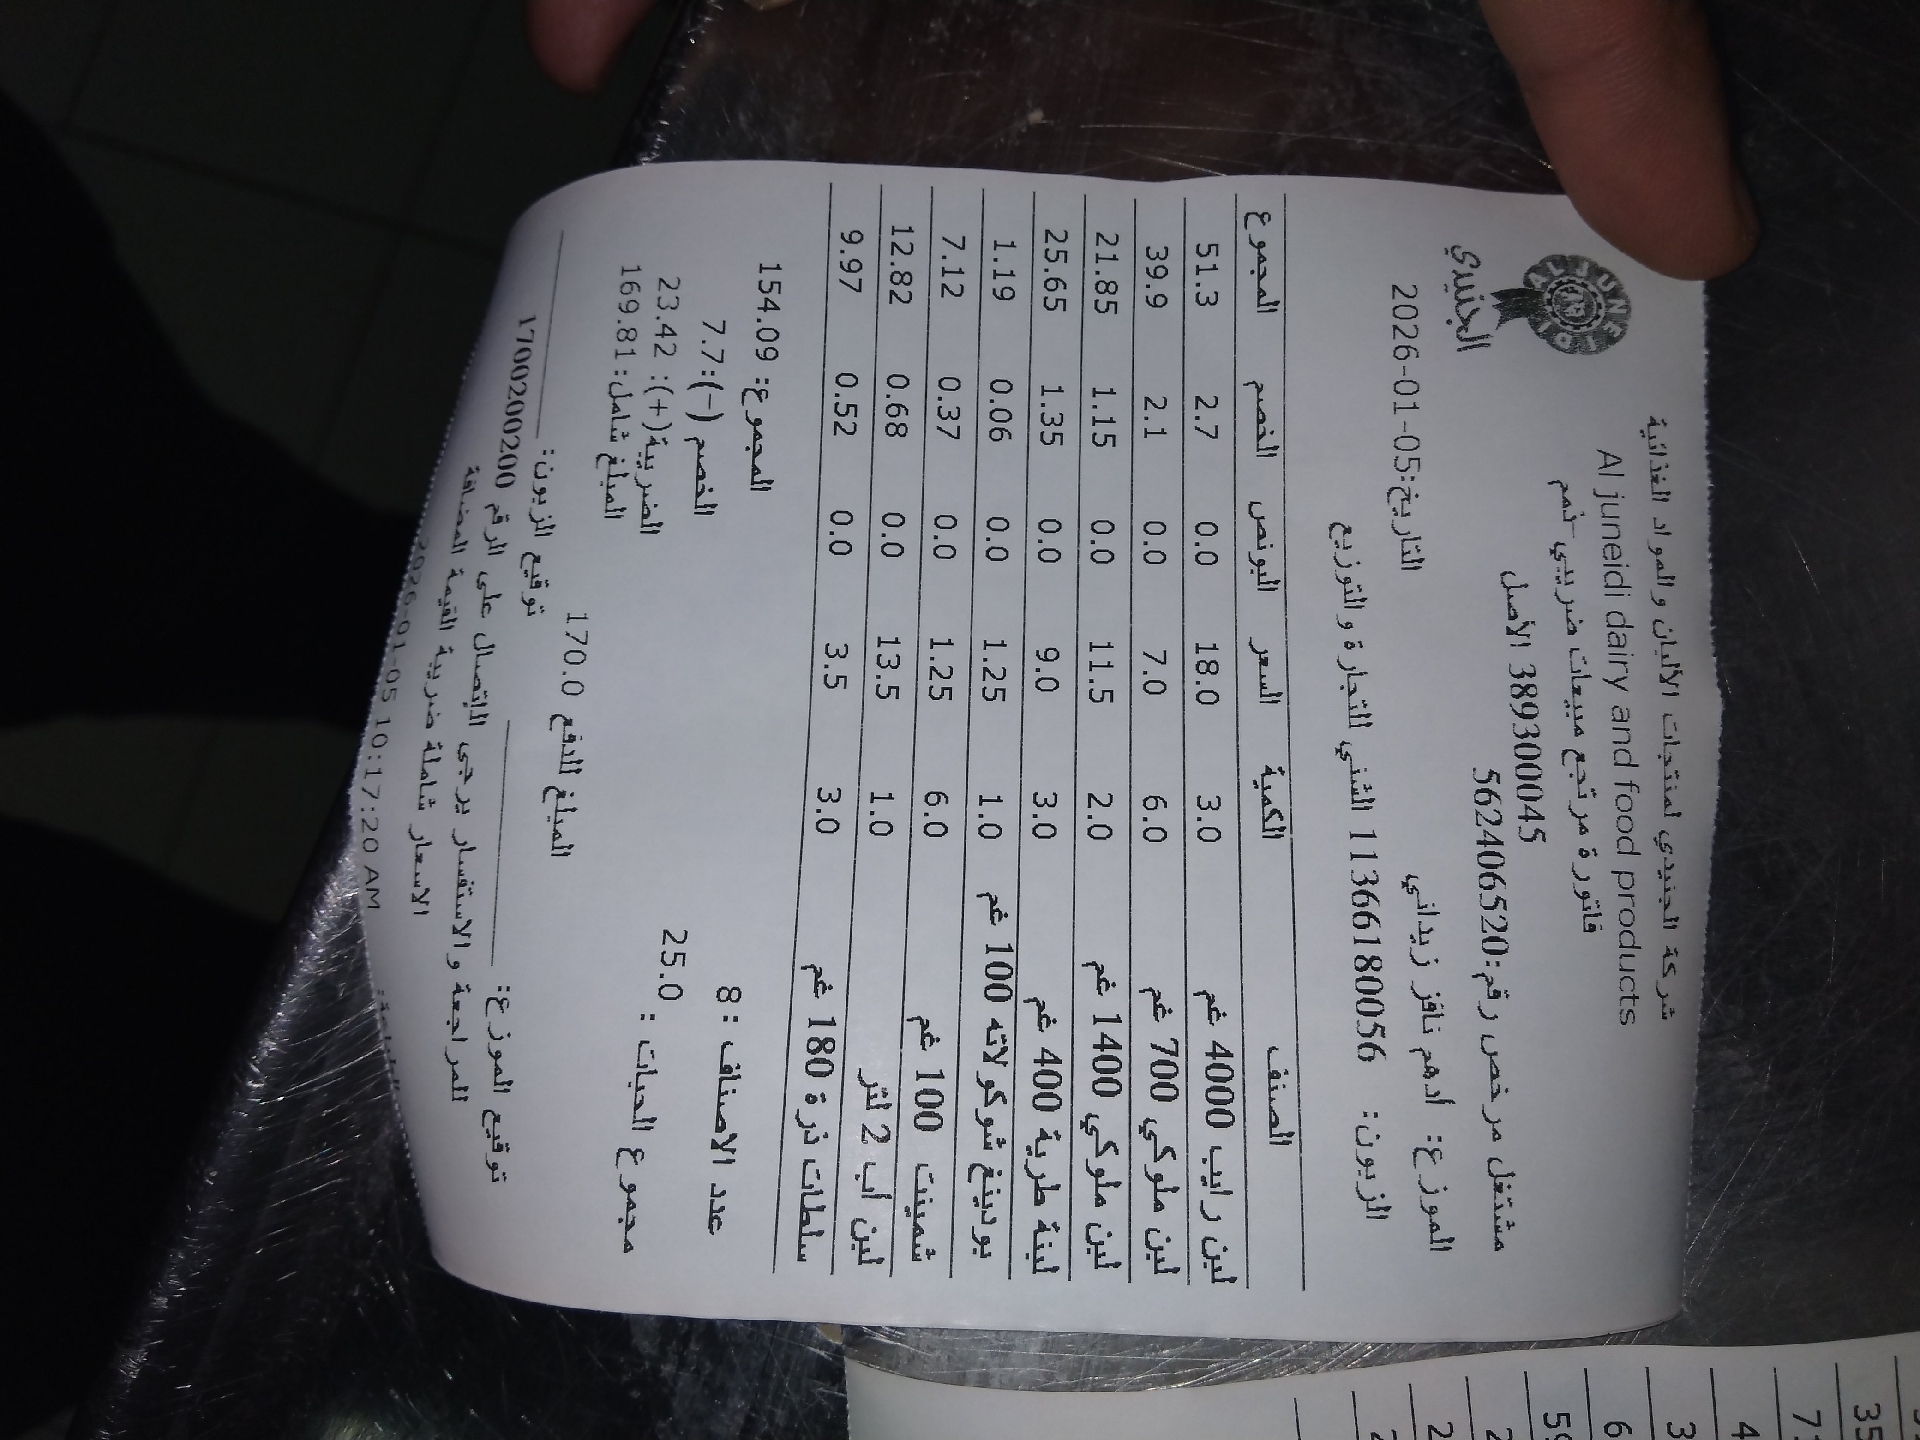 شركة الجنيدي لمنتجات الألبان والمواد الغذائية
Al juneidi dairy and food products
AL JUNEIDI
الجنيدي
فاتورة مرتجع مبيعات ضريبي
38930045 الأصل
مشتغل مرخص رقم:562406520
التاريخ:2026-01-05
الموزع: ادهم نافز زيداني
الزبون: 11366180056 الشني للتجارة والتوزيع
الصنف الكمية السعر البونص الخصم المجموع
لبن رايب 4000 غم 3.0 18.0 0.0 2.7 51.3
لبن ملوكي 700 غم 6.0 7.0 0.0 2.1 39.9
لبن ملوكي 1400 غم 2.0 11.5 0.0 1.15 21.85
لبنة طرية 400 غم 3.0 9.0 0.0 1.35 25.65
بودينغ شوكولاته 100 غم 1.0 1.25 0.0 0.06 1.19
شمينت 100 غم 6.0 1.25 0.0 0.37 7.12
لبن أب 2 لتر 1.0 13.5 0.0 0.68 12.82
سلطات ذرة 180 غم 3.0 3.5 0.0 0.52 9.97
المجموع: 154.09
عدد الاصناف : 8
الخصم (-):7.7
الضريبة(+): 23.42
مجموع الحبات : 25.0
المبلغ شامل: 169.81
المبلغ للدفع 170.0
توقيع الموزع:
توقيع الزبون:
للمراجعة والاستفسار يرجى الاتصال على الرقم 1700200200
الاسعار شاملة ضريبة القيمة المضافة
2026-01-05 10:17:20 AM